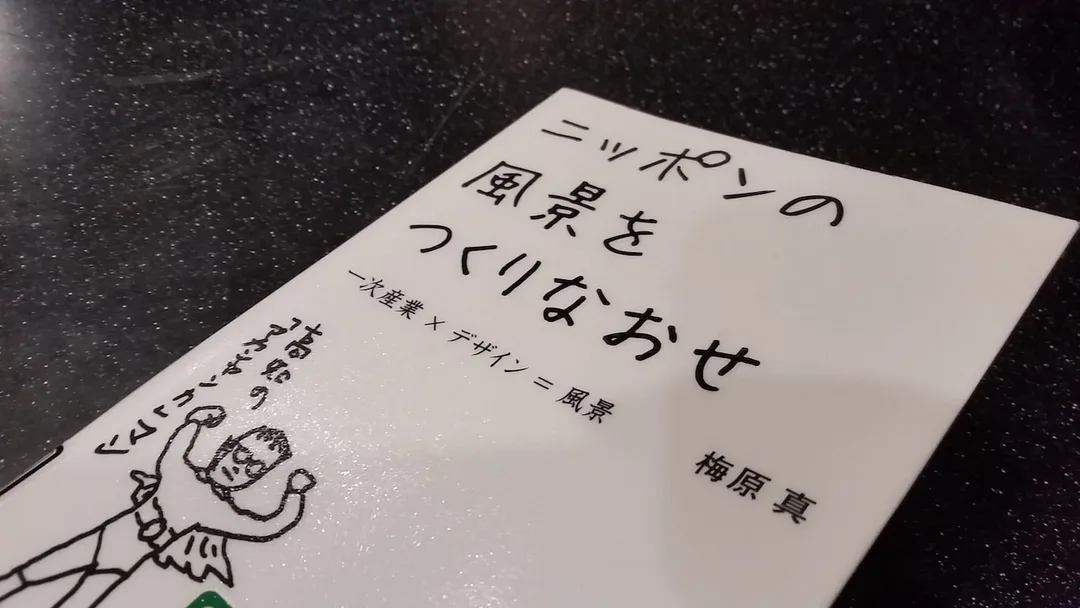 ニッポンの
風景を
つくりなおせ
一次産業×デザイン=風景
梅原 真
高知の
アカンカンマン